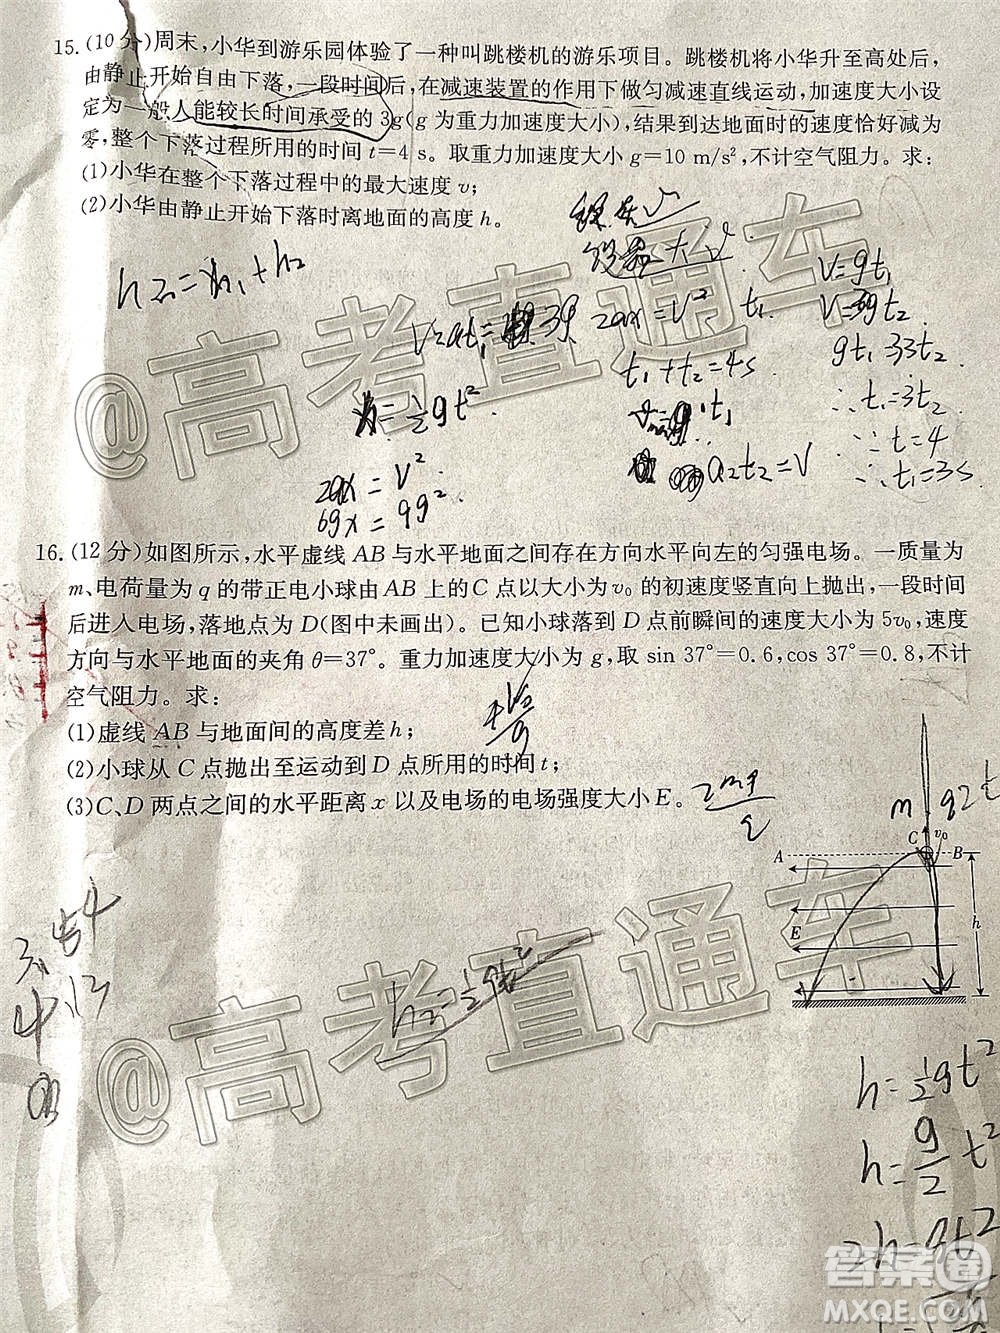 15. (10分)周末，小华到游乐园体验了一种叫跳楼机的游乐项目。跳楼机将小华升至高处后，
由静止开始自由下落，一段时间后，在减速装置的作用下做匀减速直线运动，加速度大小设
定为一般人能较长时间承受的3g(g为重力加速度大小)，结果到达地面时的速度恰好减为
零，整个下落过程所用的时间t=4 s。取重力加速度大小g=10 m/s²，不计空气阻力。求：
(1)小华在整个下落过程中的最大速度v；
(2)小华由静止开始下落时离地面的高度h。
V=gt₁
2ax=V² t₁
t₁+t₂=4s
∴t₁=3t₂
∵t=4
∴t₁=3s
x=½gt²
a₂t₂=V
2ax=V²
6gx=9g²
16. (12分)如图所示，水平虚线AB与水平地面之间存在方向水平向左的匀强电场。一质量为
m、电荷量为q的带正电小球由AB上的C点以大小为v₀的初速度竖直向上抛出，一段时间
后进入电场，落地点为D(图中未画出)。已知小球落到D点前瞬间的速度大小为5v₀，速度
方向与水平地面的夹角θ=37°。重力加速度大小为g，取sin 37°=0.6，cos 37°=0.8，不计
空气阻力。求：
(1)虚线AB与地面间的高度差h；
(2)小球从C点抛出至运动到D点所用的时间t；
(3)C、D两点之间的水平距离x以及电场的电场强度大小E。
m
C v₀
A B
E h
h=½gt²
h=g/2 t²
2h=gt²
@高考直通车
@高考直通车
答案圈
MXQE.COM